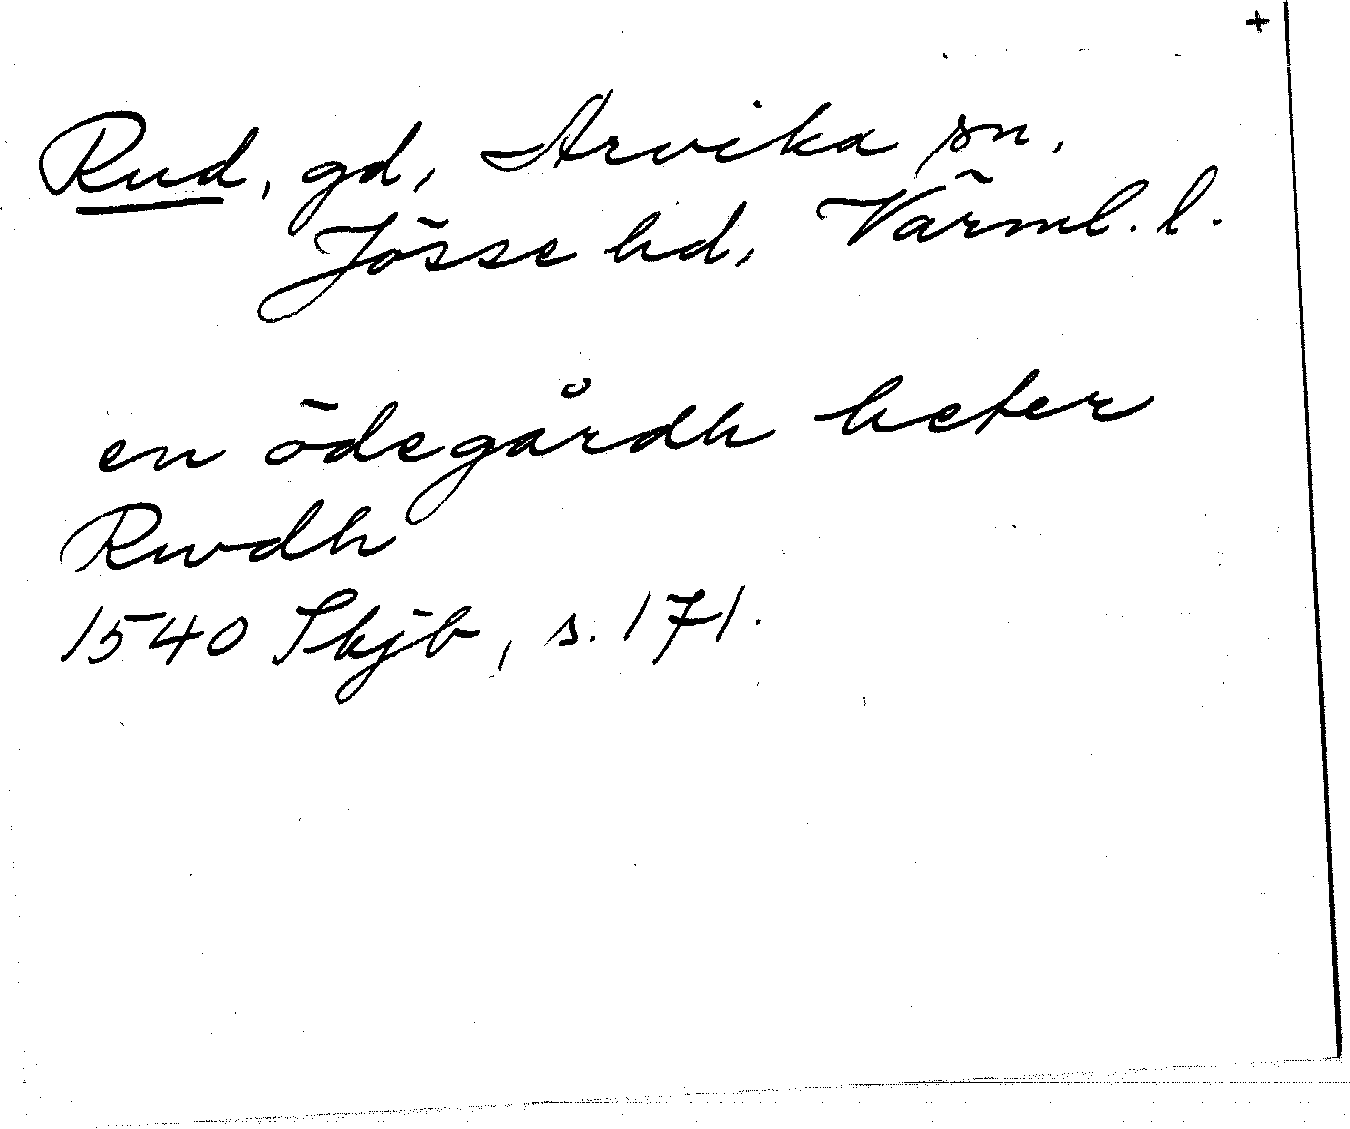 +
Rud, gd, Arvika sn,
Jösse hd, Värml. l.
en ödegårdh heter
Rwdh
1540 Skjb, s. 171.